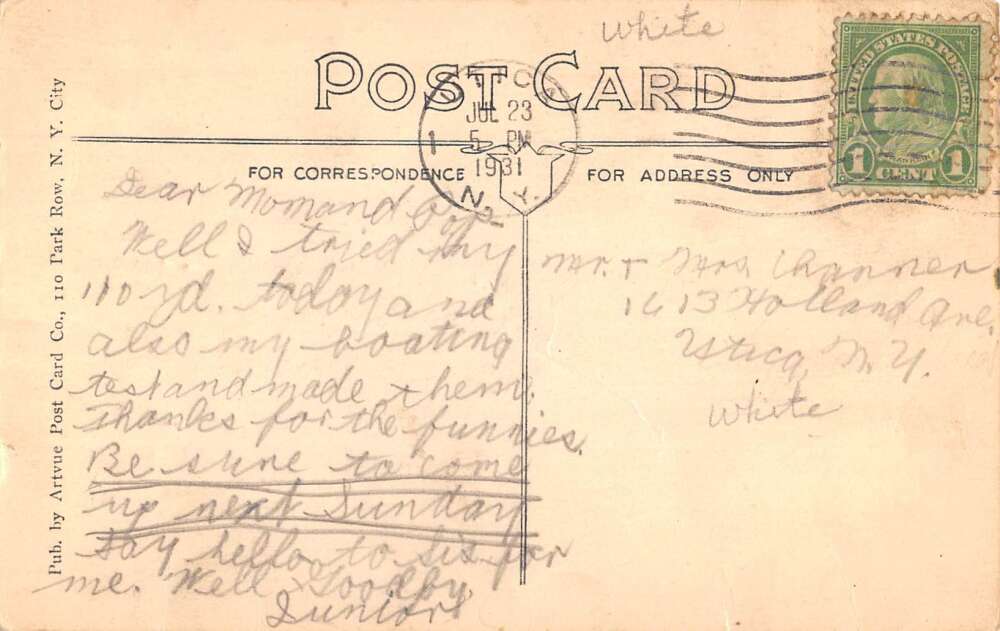 White
POST CARD
UTICA
JUL 23
5 PM
1931
N. Y.
1
UNITED STATES POSTAGE
FRANKLIN
1 CENT 1
FOR CORRESPONDENCE
FOR ADDRESS ONLY
Pub. by Artvue Post Card Co., 110 Park Row, N. Y. City
Dear Mom and Pop
Well I tried my
110 yd. today and
also my boating
test and made them.
Thanks for the funnies.
Be sure to come
up next Sunday
Say hello to Sis for
me. Well Goodby
Junior
Mr. + Mrs Channer
1613 Holland Ave.
Utica, N. Y.
White